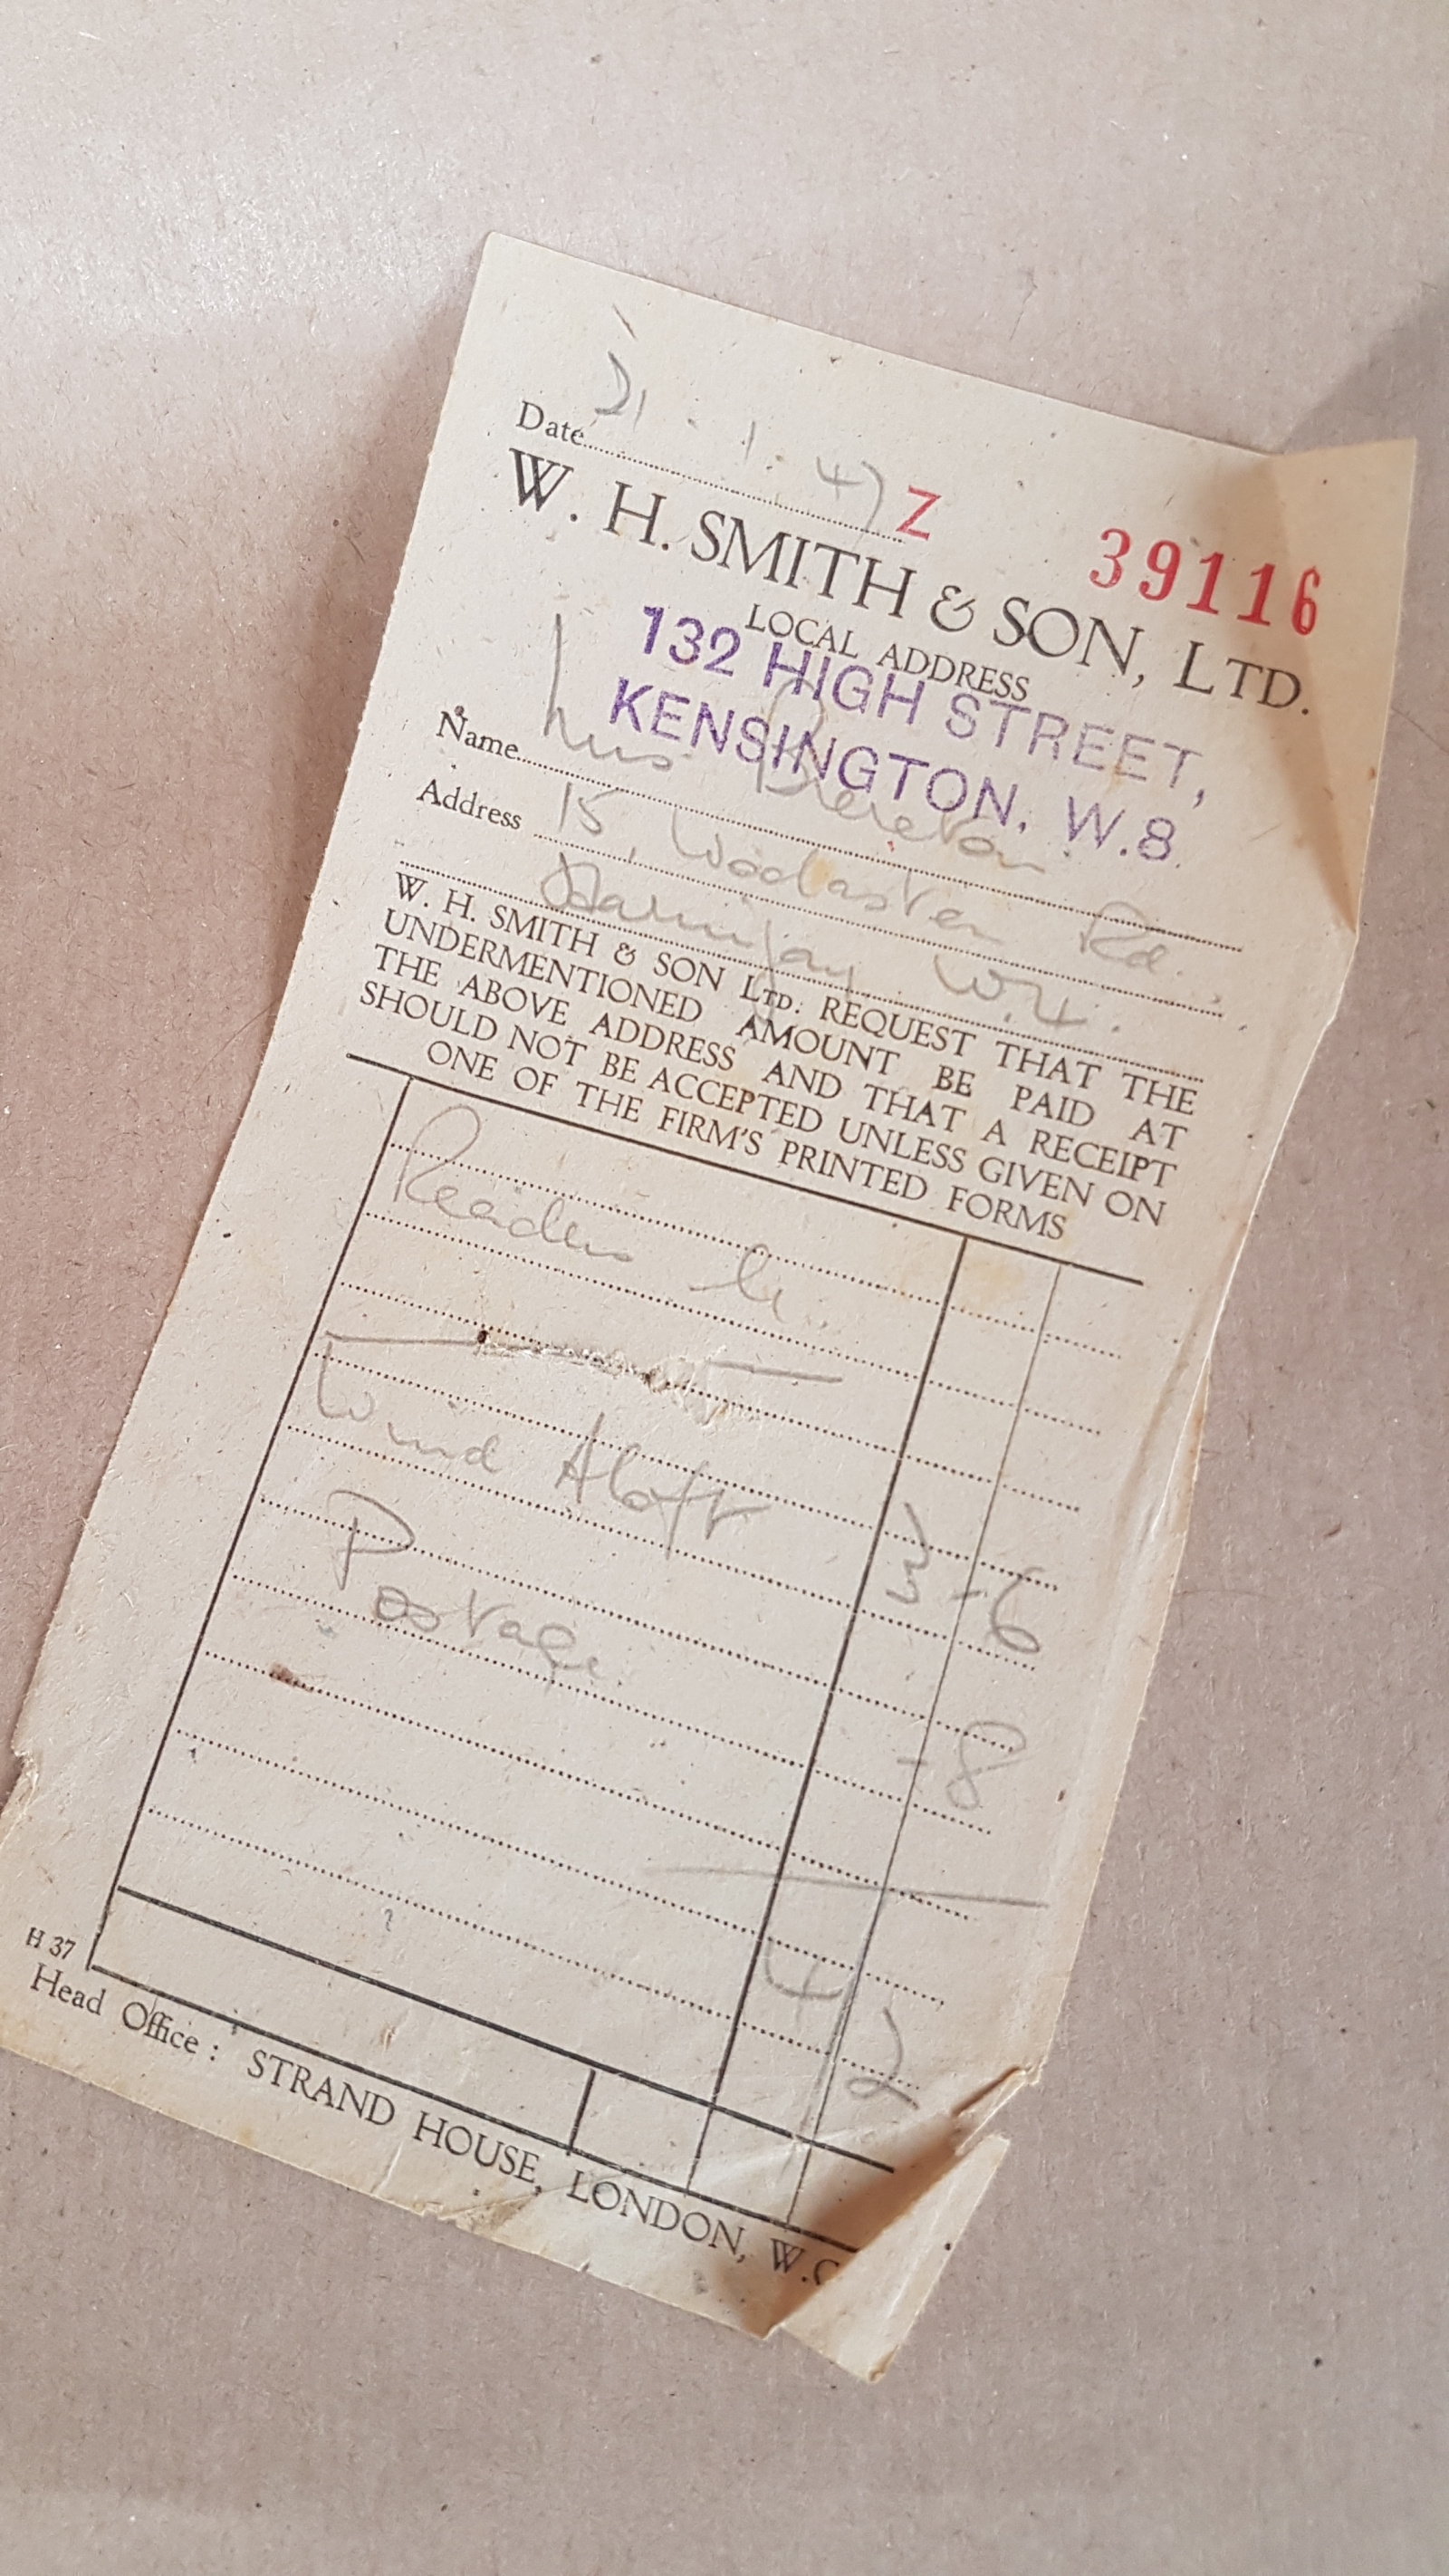 Date 21.1.47 Z 39116
W. H. SMITH & SON, LTD.
LOCAL ADDRESS
132 HIGH STREET,
KENSINGTON, W.8.
Name Mrs. Brereton.
Address 15, Rd.
W.14.
W. H. SMITH & SON LTD. REQUEST THAT THE
UNDERMENTIONED AMOUNT BE PAID AT
THE ABOVE ADDRESS AND THAT A RECEIPT
SHOULD NOT BE ACCEPTED UNLESS GIVEN ON
ONE OF THE FIRM'S PRINTED FORMS
Readers
Wind Aloft 3-6
Postage. -8
4 2
H 37
Head Office : STRAND HOUSE, LONDON, W.C